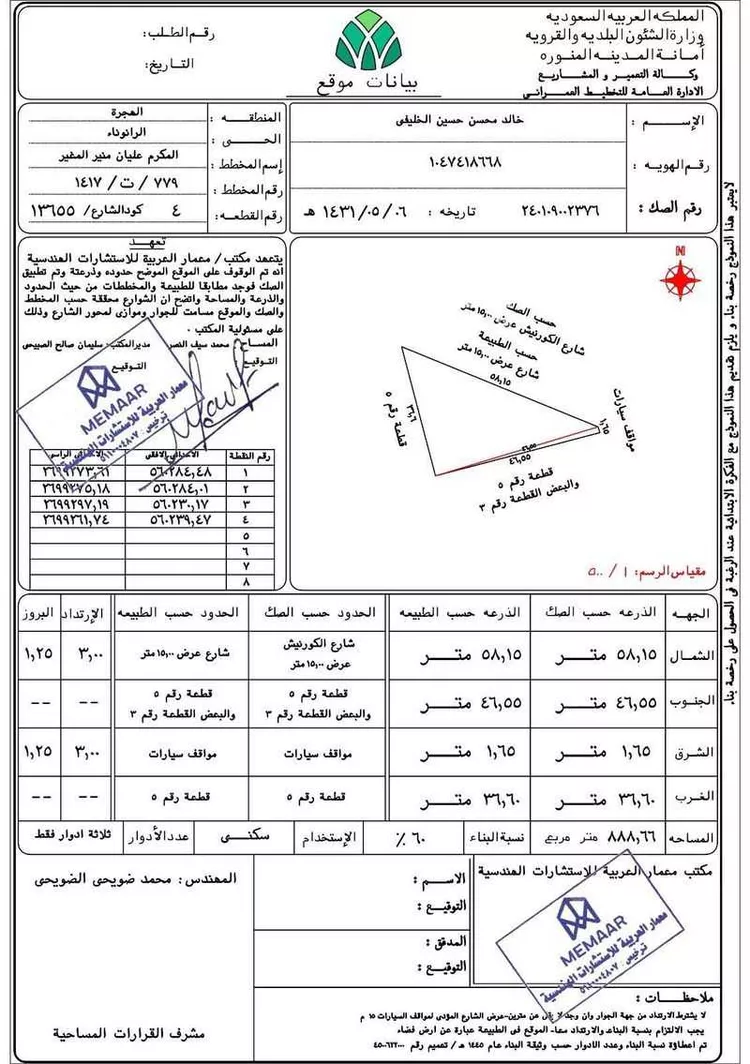 المملكة العربية السعودية
وزارة الشئون البلدية والقروية
أمانة المدينة المنورة
وكالة التعمير و المشاريع
الادارة العامة للتخطيط العمراني
بيانات موقع
رقم الطلب:
التاريخ:
الإسم : خالد محسن حسين الخليفى
رقم الهويه : ١٠٤٧٤١٨٦٦٨
رقم الصك : ٢٤٠١٠٩٠٠٢٣٧٦ تاريخه : ١٤٣١/٠٥/٠٦ هـ
المنطقه : الهجرة
الحى : الرانوناء
إسم المخطط : المكرم عليان منير المغير
رقم المخطط : ٧٧٩/ت/١٤١٧
رقم القطعه : ٤ كود الشارع/ ١٣٦٥٥
تعهد
يتعهد مكتب/ معمار العربية للاستشارات الهندسية
انه تم الوقوف على الموقع الموضح حدوده وذرعتة وتم تطبيق
الصك فوجد مطابقا للطبيعة والمخططات من حيث الحدود
والذرعة والمساحة واتضح ان الشوارع محققة حسب المخطط
والصك والموقع مسامت للجوار وموازى لمحور الشارع وذلك
على مسئولية المكتب .
المساح : محمد سيف النصر مدير المكتب: سليمان صالح الصبيحي
التوقيع التوقيع
MEMAAR
معمار العربية للاستشارات الهندسية
ترخيص : ٥١١٠٠٠٤٨٠٧
رقم النقطة
١ ٥٦٠٢٨٤,٤٨ ٢٦٩٩٢٧٣,٦١
٢ ٥٦٠٢٨٤,٠١ ٢٦٩٩٢٧٥,١٨
٣ ٥٦٠٢٣٠,١٧ ٢٦٩٩٢٩٧,١٩
٤ ٥٦٠٢٣٩,٤٧ ٢٦٩٩٢٦١,٧٤
٥
٦
٧
٨
N
حسب الصك
شارع الكورنيش عرض ١٥,٠٠ متر
حسب الطبيعة
شارع عرض ١٥,٠٠ متر
٥٨,١٥
٣٦,٦
قطعة رقم ٥
١,٦٥
مواقف سيارات
٤٦,٥٥
٤٦,٥٥
قطعة رقم ٥
والبعض القطعة رقم ٣
مقياس الرسم: ١ / ٥٠٠
الجهه الذرعه حسب الصك الذرعه حسب الطبيعه الحدود حسب الصك الحدود حسب الطبيعه الإرتداد البروز
الشمال ٥٨,١٥ متر ٥٨,١٥ متر شارع الكورنيش عرض ١٥,٠٠ متر شارع عرض ١٥,٠٠ متر ٣,٠٠ ١,٢٥
الجنوب ٤٦,٥٥ متر ٤٦,٥٥ متر قطعة رقم ٥ والبعض القطعة رقم ٣ قطعة رقم ٥ والبعض القطعة رقم ٣ -- --
الشرق ١,٦٥ متر ١,٦٥ متر مواقف سيارات مواقف سيارات ٣,٠٠ ١,٢٥
الغرب ٣٦,٦٠ متر ٣٦,٦٠ متر قطعة رقم ٥ قطعة رقم ٥ -- --
المساحه ٨٨٨,٦٦ متر مربع نسبة البناء ٦٠ ٪ الإستخدام سكنى عدد الأدوار ثلاثة ادوار فقط
مكتب معمار العربية للإستشارات الهندسية
MEMAAR
معمار العربية للاستشارات الهندسية
ترخيص : ٥١١٠٠٠٤٨٠٧
الاسم :
التوقيع :
المدقق :
التوقيع :
المهندس: محمد ضويحى الضويحى
مشرف القرارات المساحية
ملاحظات :
لا يشترط الارتداد من جهة الجوار وان وجد لا يقل عن مترين-عرض الشارع المؤدى لمواقف السيارات ١٥ م
يجب الالتزام بنسبة البناء والارتداد معا- الموقع فى الطبيعة عبارة عن ارض فضاء
تم اعطاؤة نسبة البناء وعدد الادوار حسب وثيقة البناء عام ١٤٤٥هـ / تعميم رقم
لايعتبر هذا النموذج رخصة بناء. و يلزم تقديم هذا النموذج مع الفكرة الابتدائية عند الرغبة فى الحصول على رخصة بناء.